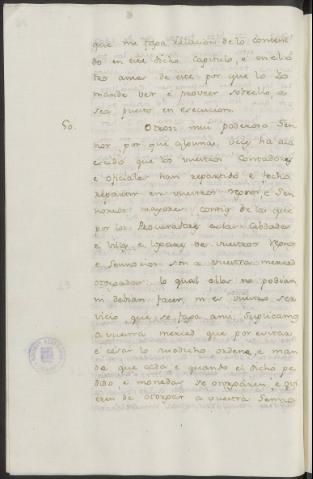 que me faga relacion de lo conteni-
do en este dicho Capitulo, e en el o
tro antes de este por que lo Yo
mande ver e proveer sobre ello, e
sea puesto en execucion.
50. Otrosi mui poderoso Sen
nor por que algunas veces ha aca
escido que los vuestros Contadores
e oficiales han repartido e fecho
repartir en vuestros Regnos, e Sen
norios mayores contias de las que
por los Procuradores de las Cibdades
e Villas, e Logares de vuestros Regnos
e Sennorios son a vuestra merced
otorgadas: lo qual ellos no podian,
ni debian facer, ni es vuestro ser
vicio que se faga ansi. Suplicamos
a vuestra merced que por evitar
e cesar lo susodicho, ordene, e man
de que cada e quando el dicho pe
dido, e monedas se otorgaren, e ovi
eren de otorgar a vuestra Senno